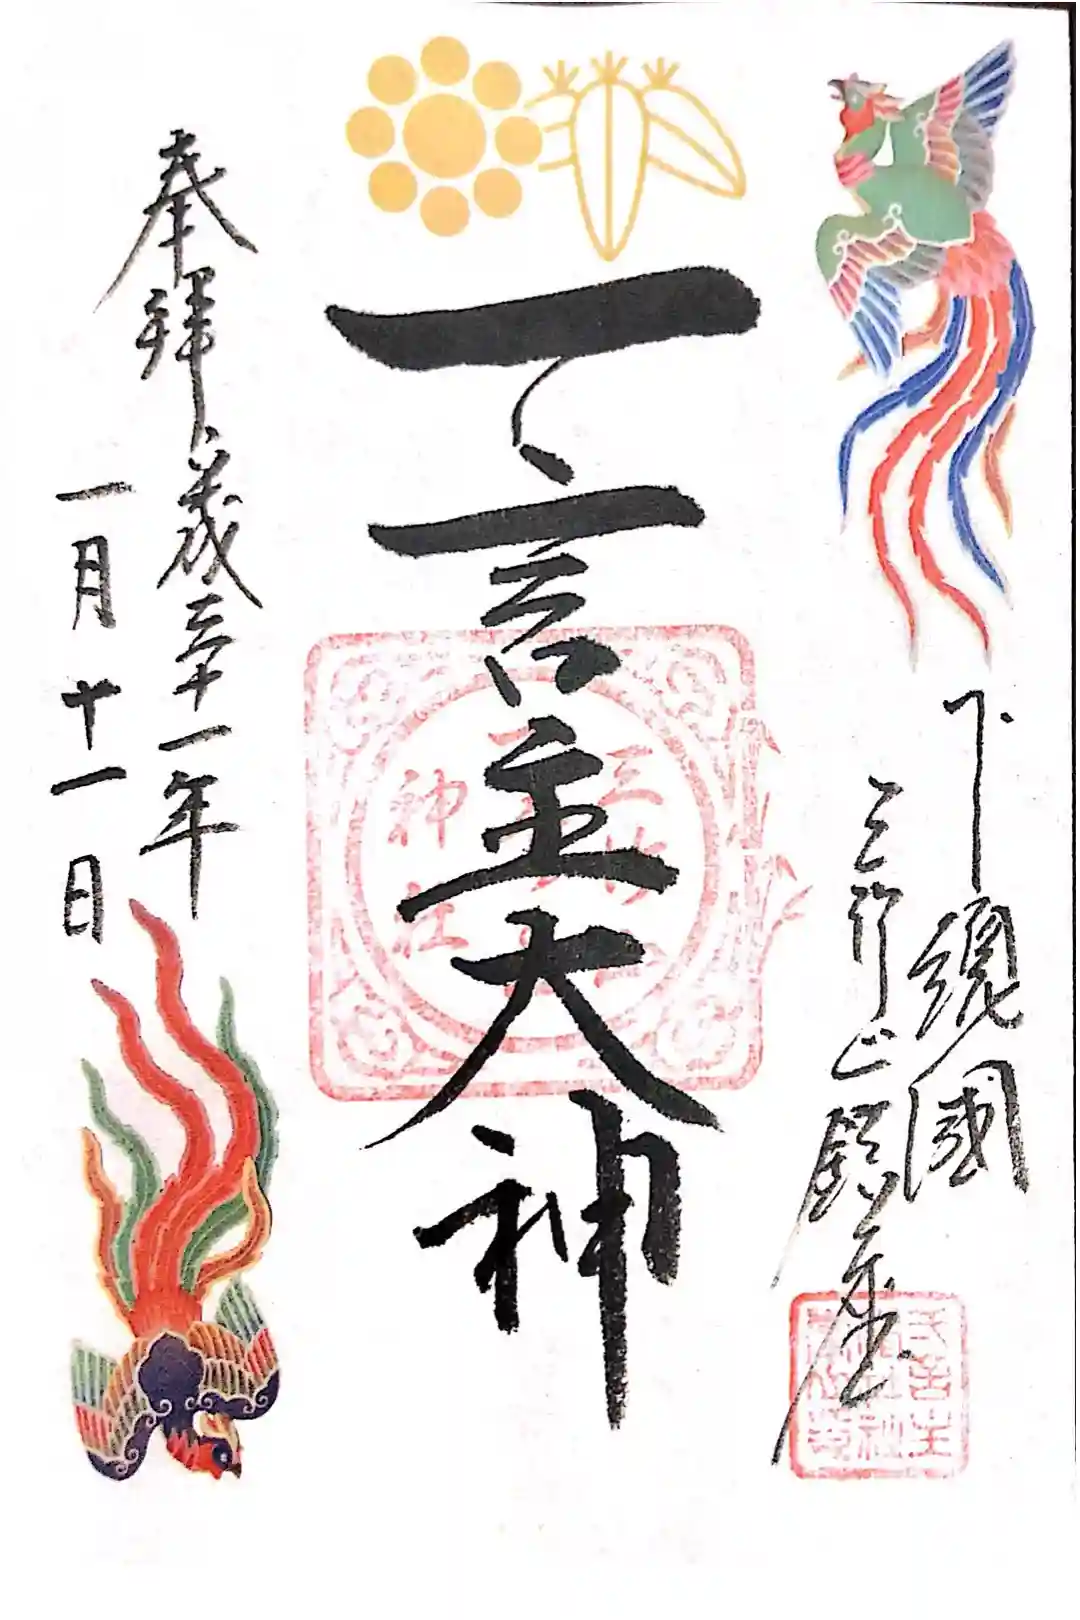 下總國
三竹山鎮座
一言主大神
三竹山
一言主
神社
奉拝
平成三十一年
一月十一日